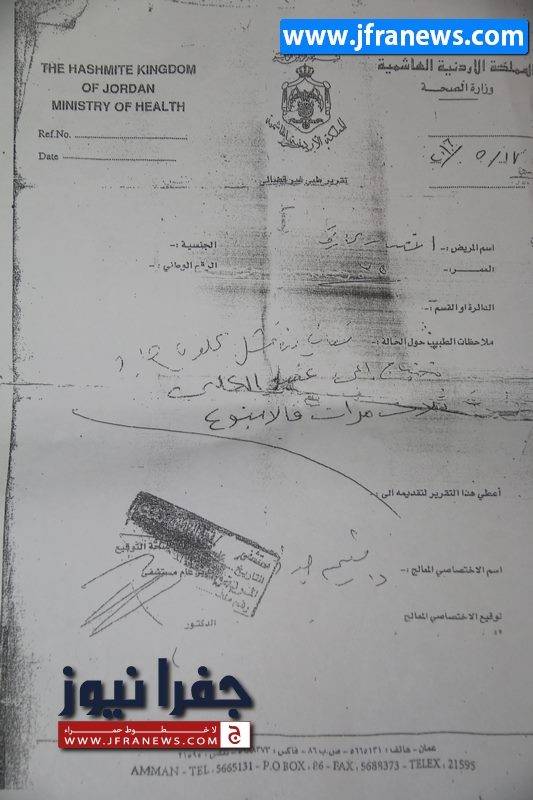 www.jfranews.com
THE HASHMITE KINGDOM
OF JORDAN
MINISTRY OF HEALTH
المملكة الأردنية الهاشمية
وزارة الصحة
المملكة الأردنية الهاشمية
Ref.No.
Date
تقرير طبي غير قضائي
اسم المريض :-
الجنسية :-
العمر :-
الرقم الوطني :-
الدائرة او القسم :-
ملاحظات الطبيب حول الحالة :-
تعاني من فشل كلوي
تحتاج الى غسيل الكلى
ثلاث مرات في الاسبوع
أعطي هذا التقرير لتقديمه الى :-
مستشفى
التاريخ
صحة التوقيع
عام مستشفى
اسم الاختصاصي المعالج :-
توقيع الاختصاصي المعالج :-
الدكتور
جفرا نيوز
لا خطوط حمراء
WWW.JFRANEWS.COM
عمان - هاتف : ٥٦٦٥١٣١ - ص.ب ٨٦ - فاكس :
AMMAN - TEL. 5665131 - P.O BOX . 86 - FAX . 5688373 - TELEX . 21595